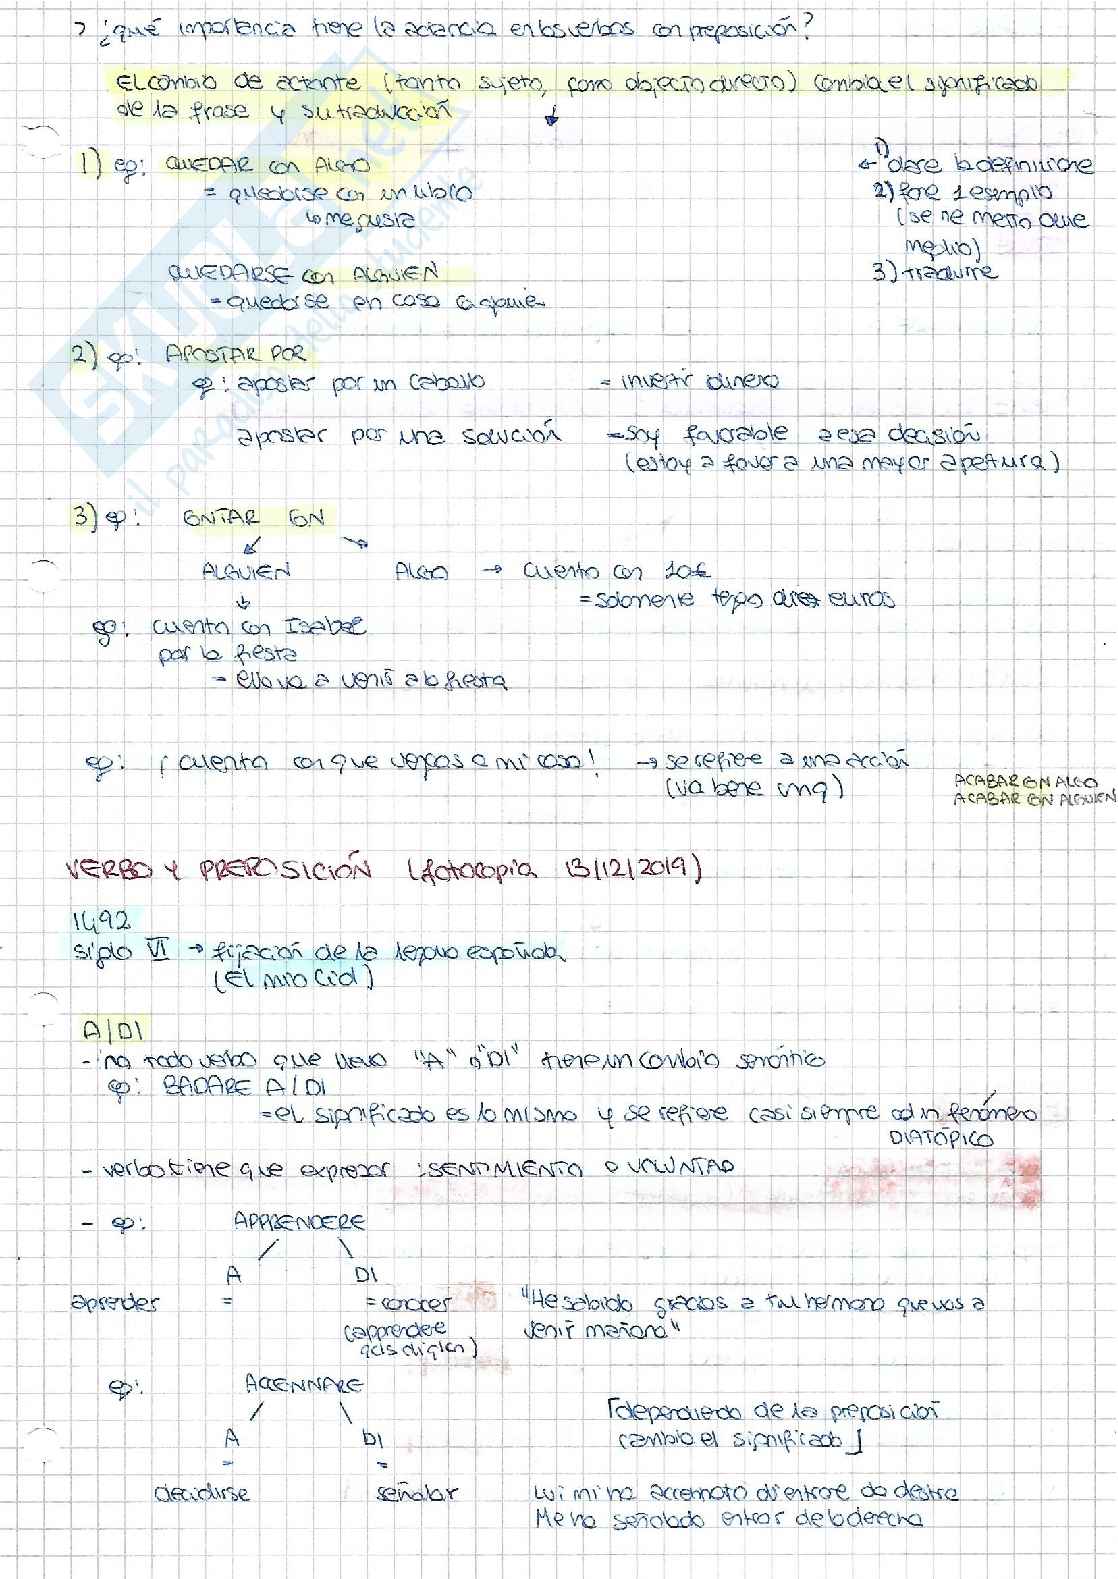 > ¿qué importancia tiene la actancia en los verbos con preposición?
El cambio de actante (tanto sujeto, como objecto directo) cambia el significado
de la frase y su traducción
1) ej: QUEDAR con ALGO
= quedarse con un libro
↳ me gusta
QUEDARSE con ALGUIEN
= quedarse en casa
1) dare la definizione
2) fare 1 esempio
(se ne metto due
meglio)
3) tradurre
2) ej: APOSTAR POR
ej: apostar por un caballo = invertir dinero
apostar por una solución = soy favorable a esa decisión
(estoy a favor a una mayor apertura)
3) ej: CONTAR CON
ALGUIEN ALGO → cuento con 10€
= solamente tengo diez euros
ej: cuento con Isabel
por la fiesta
= ella va a venir a la fiesta
ej: ¡cuenta con que vengas a mi casa! → se refiere a una acción
(va bene cmq)
ACABAR CON ALGO
ACABAR CON ALGUIEN
VERBO Y PREPOSICIÓN (fotocopia 13/12/2019)
1492
siglo VI → fijación de la lengua española
(El mio Cid)
A/DI
- no todo verbo que lleva "A" o "DI" tiene un cambio semántico
ej: BADARE A/DI
= el significado es lo mismo y se refiere casi siempre ad un fenómeno
DIATÓPICO
- verbo tiene que expresar: SENTIMIENTO O VOLUNTAD
- ej: APPRENDERE
A DI
aprender = = conocer "He sabido gracias a tu hermano que vas a
(apprendere venir mañana"
qcs di qlcn)
ej: ACCENNARE
A DI
= =
decidirse señalar
⌈dependiendo de la preposición
cambia el significado⌋
Lui mi ha accennato di entrare da destra
Me ha señalado entrar de la derecha
SKUOLA.net
il paradiso dello studente